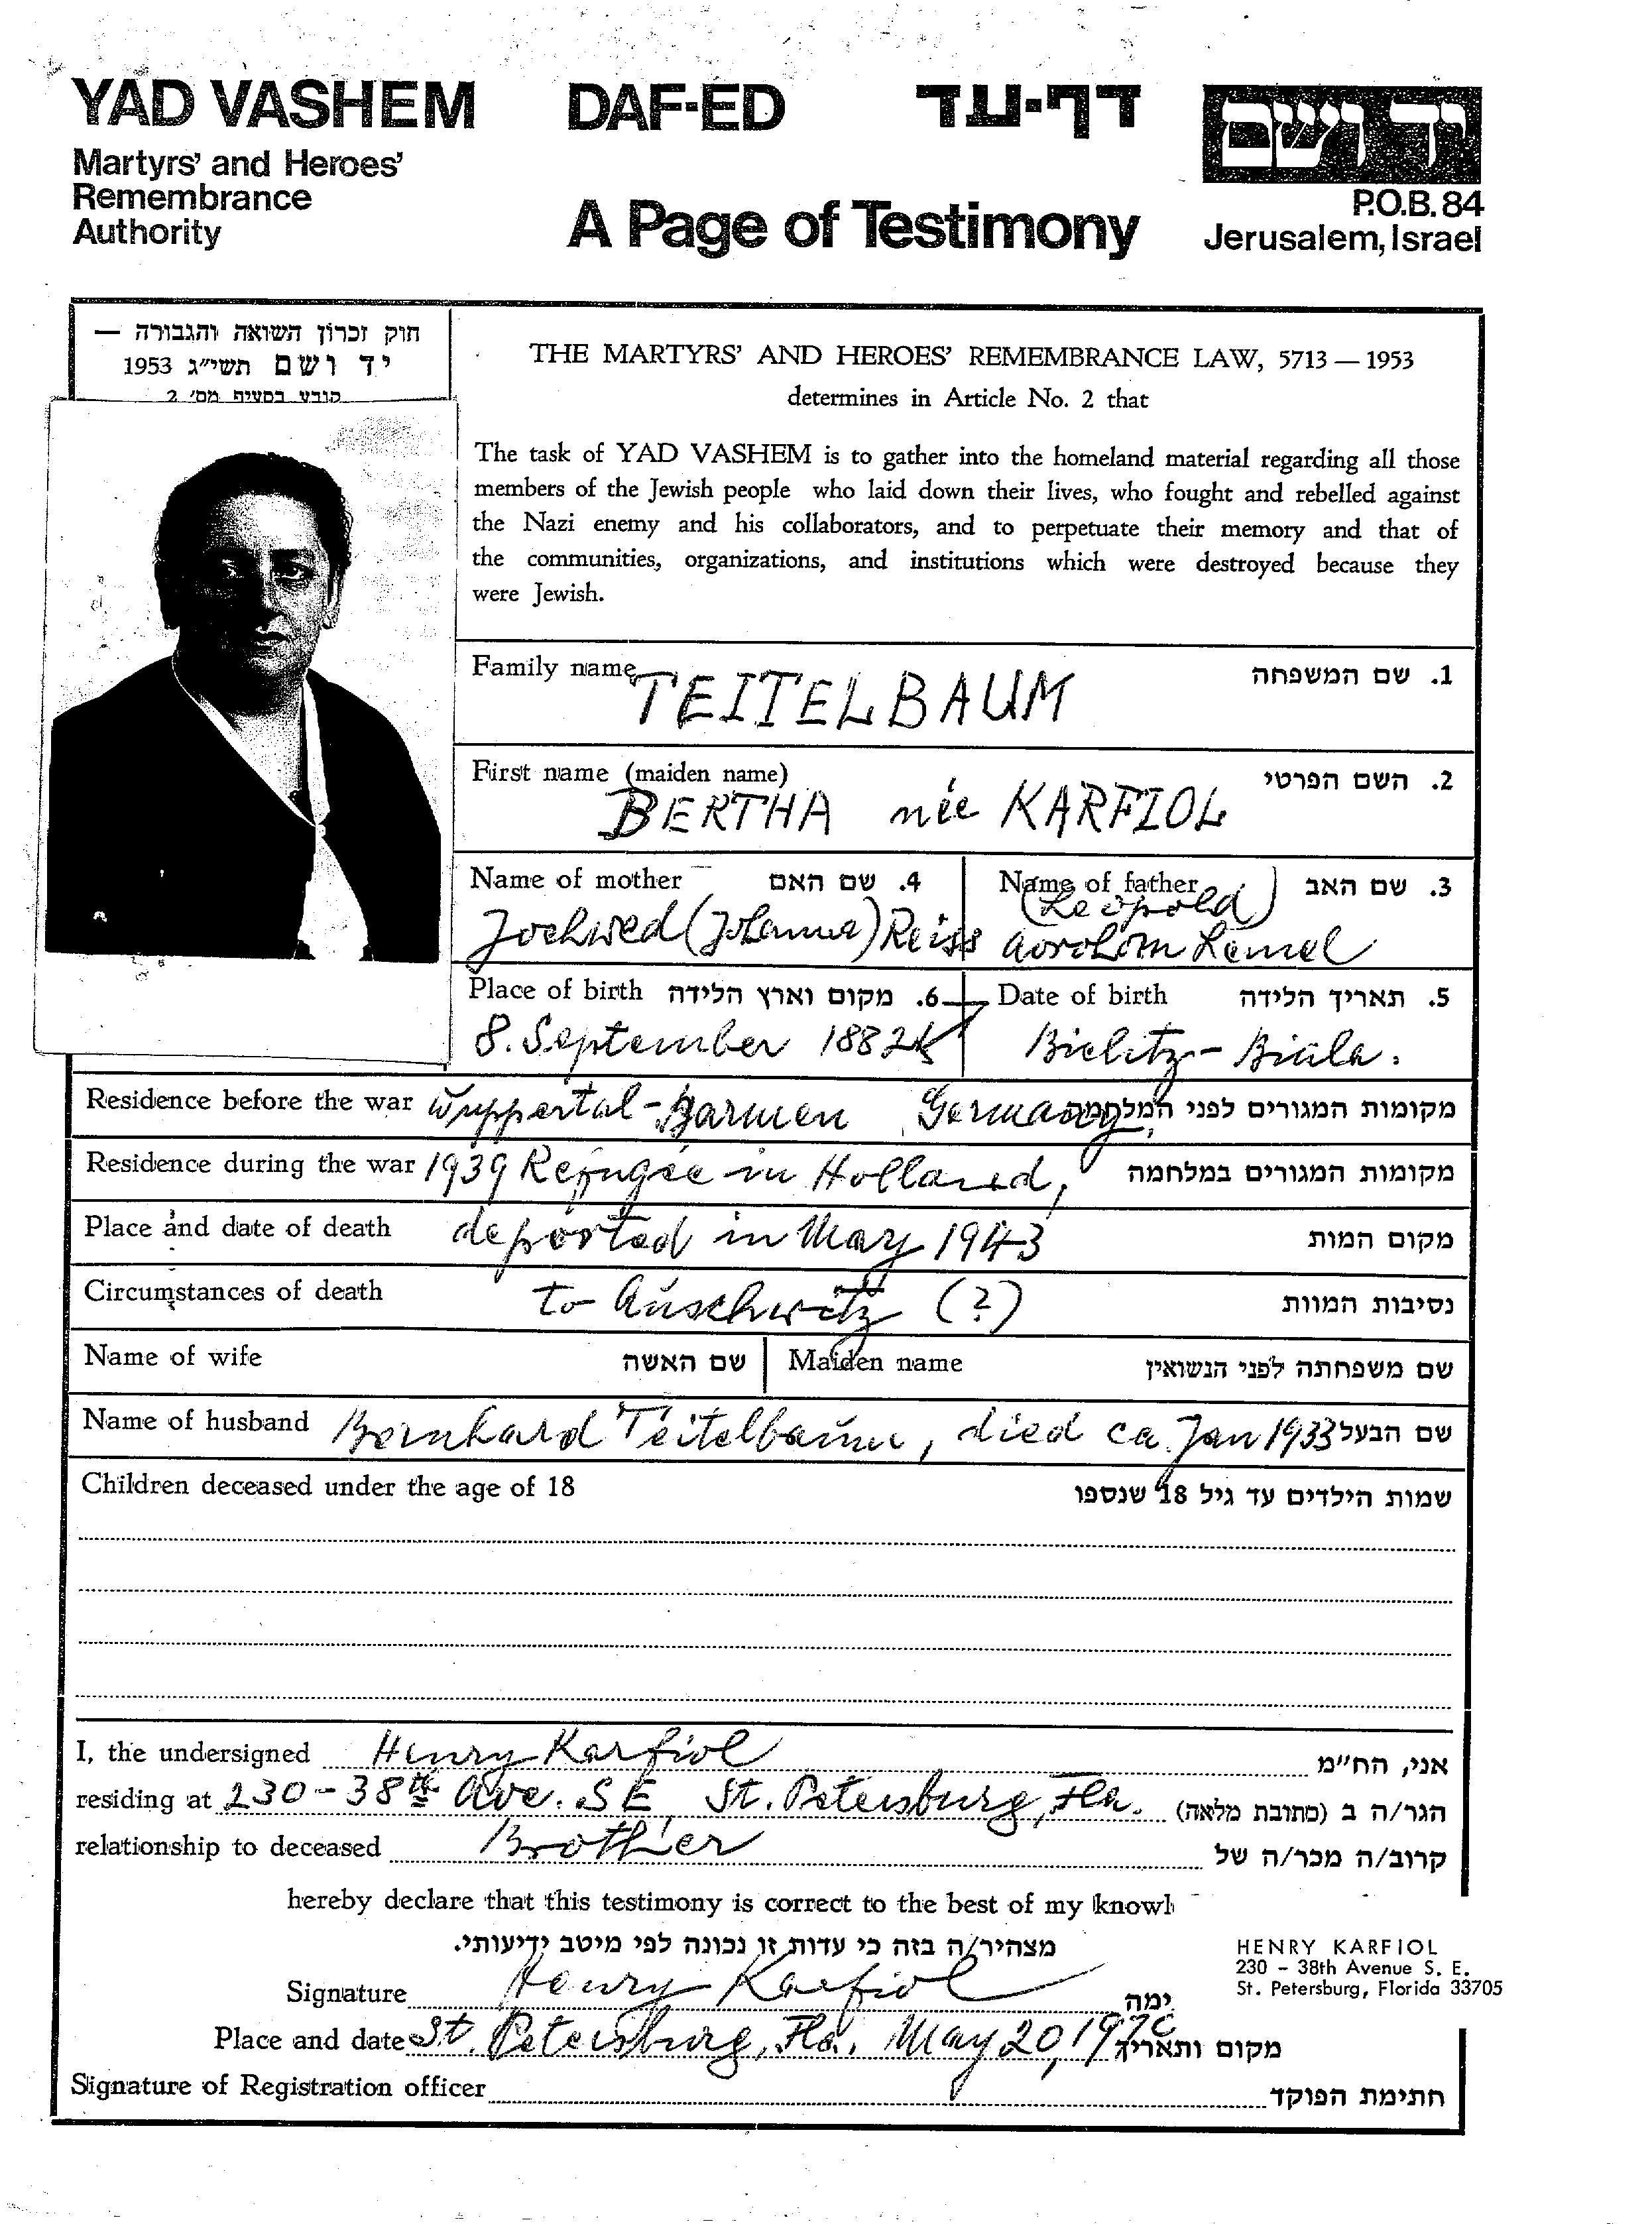 YAD VASHEM DAF-ED דף-עד יד ושם
Martyrs' and Heroes'
Remembrance
Authority
A Page of Testimony
P.O.B. 84
Jerusalem, Israel
חוק זכרון השואה והגבורה —
יד ושם תשי״ג 1953
קובע בסעיף מס׳ 2
THE MARTYRS' AND HEROES' REMEMBRANCE LAW, 5713 — 1953
determines in Article No. 2 that
The task of YAD VASHEM is to gather into the homeland material regarding all those
members of the Jewish people who laid down their lives, who fought and rebelled against
the Nazi enemy and his collaborators, and to perpetuate their memory and that of
the communities, organizations, and institutions which were destroyed because they
were Jewish.
Family name TEITELBAUM 1. שם המשפחה
First name (maiden name) 2. השם הפרטי
BERTHA née KARFIOL
Name of mother 4. שם האם
Jochwed (Johanna) Reiss
Name of father 3. שם האב
(Leopold)
Avrohom Lemel
Place of birth 6. מקום וארץ הלידה
8. September 1882
Date of birth 5. תאריך הלידה
Bielitz - Biala.
Residence before the war Wuppertal - Barmen Germany, מקומות המגורים לפני המלחמה
Residence during the war 1939 Refugee in Holland, מקומות המגורים במלחמה
Place and date of death deported in May 1943 מקום המות
Circumstances of death to Auschwitz (?) נסיבות המוות
Name of wife שם האשה Maiden name שם משפחתה לפני הנשואין
Name of husband Bernhard Teitelbaum, died ca. Jan 1933 שם הבעל
Children deceased under the age of 18 שמות הילדים עד גיל 18 שנספו
I, the undersigned Henry Karfiol אני, הח״מ
residing at 230 - 38th Ave. SE, St. Petersburg, Fla. הגר/ה ב (כתובת מלאה)
relationship to deceased Brother קרוב/ה מכר/ה של
hereby declare that this testimony is correct to the best of my knowl
מצהיר/ה בזה כי עדות זו נכונה לפי מיטב ידיעותי.
HENRY KARFIOL
230 - 38th Avenue S. E.
St. Petersburg, Florida 33705
Signature Henry Karfiol
Place and date St. Petersburg, Fla. May 20, מקום ותאריך
Signature of Registration officer חתימת הפוקד